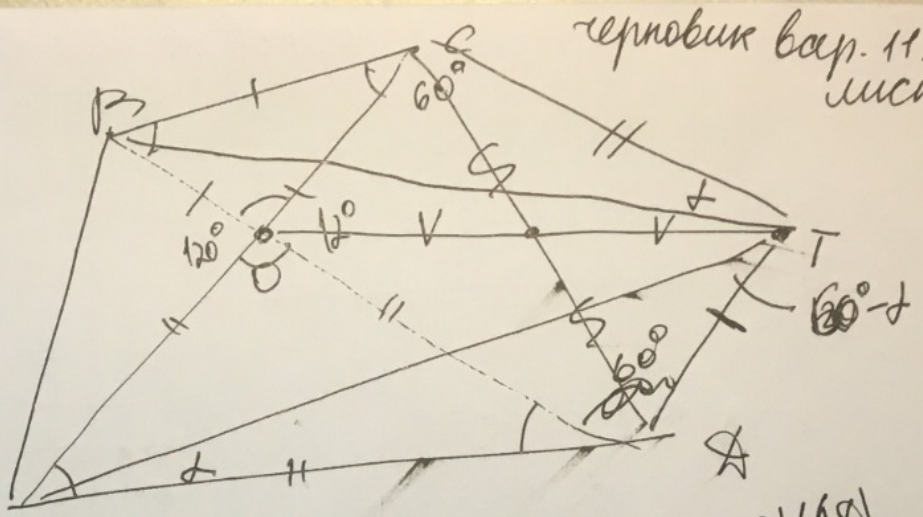 черновик вар. 11
лист
B
C
60°
α
120°
O
T
60°-α
60°
α